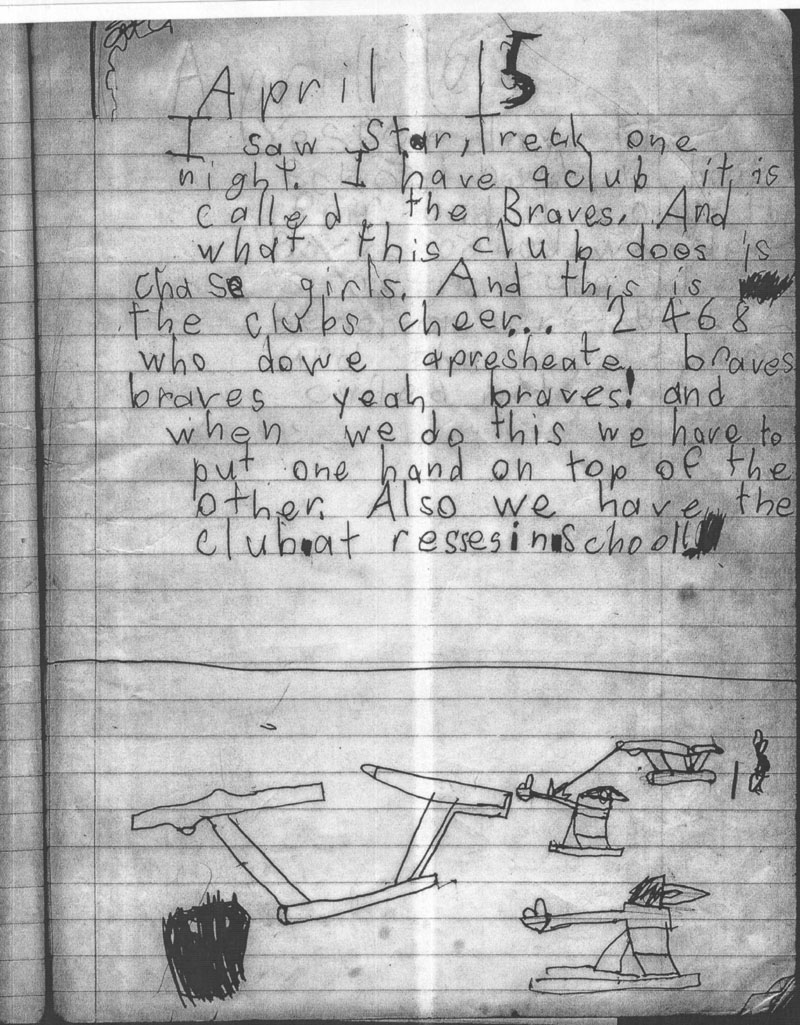 April 15
I saw Star, Treak one
night. I have a club it is
called the Braves. And
what this club does is
chase girls. And this is
the clubs cheer... 2 4 6 8
who dowe apresheate, braves
braves yeah braves! and
when we do this we have to
put one hand on top of the
other. Also we have the
club at resses in School